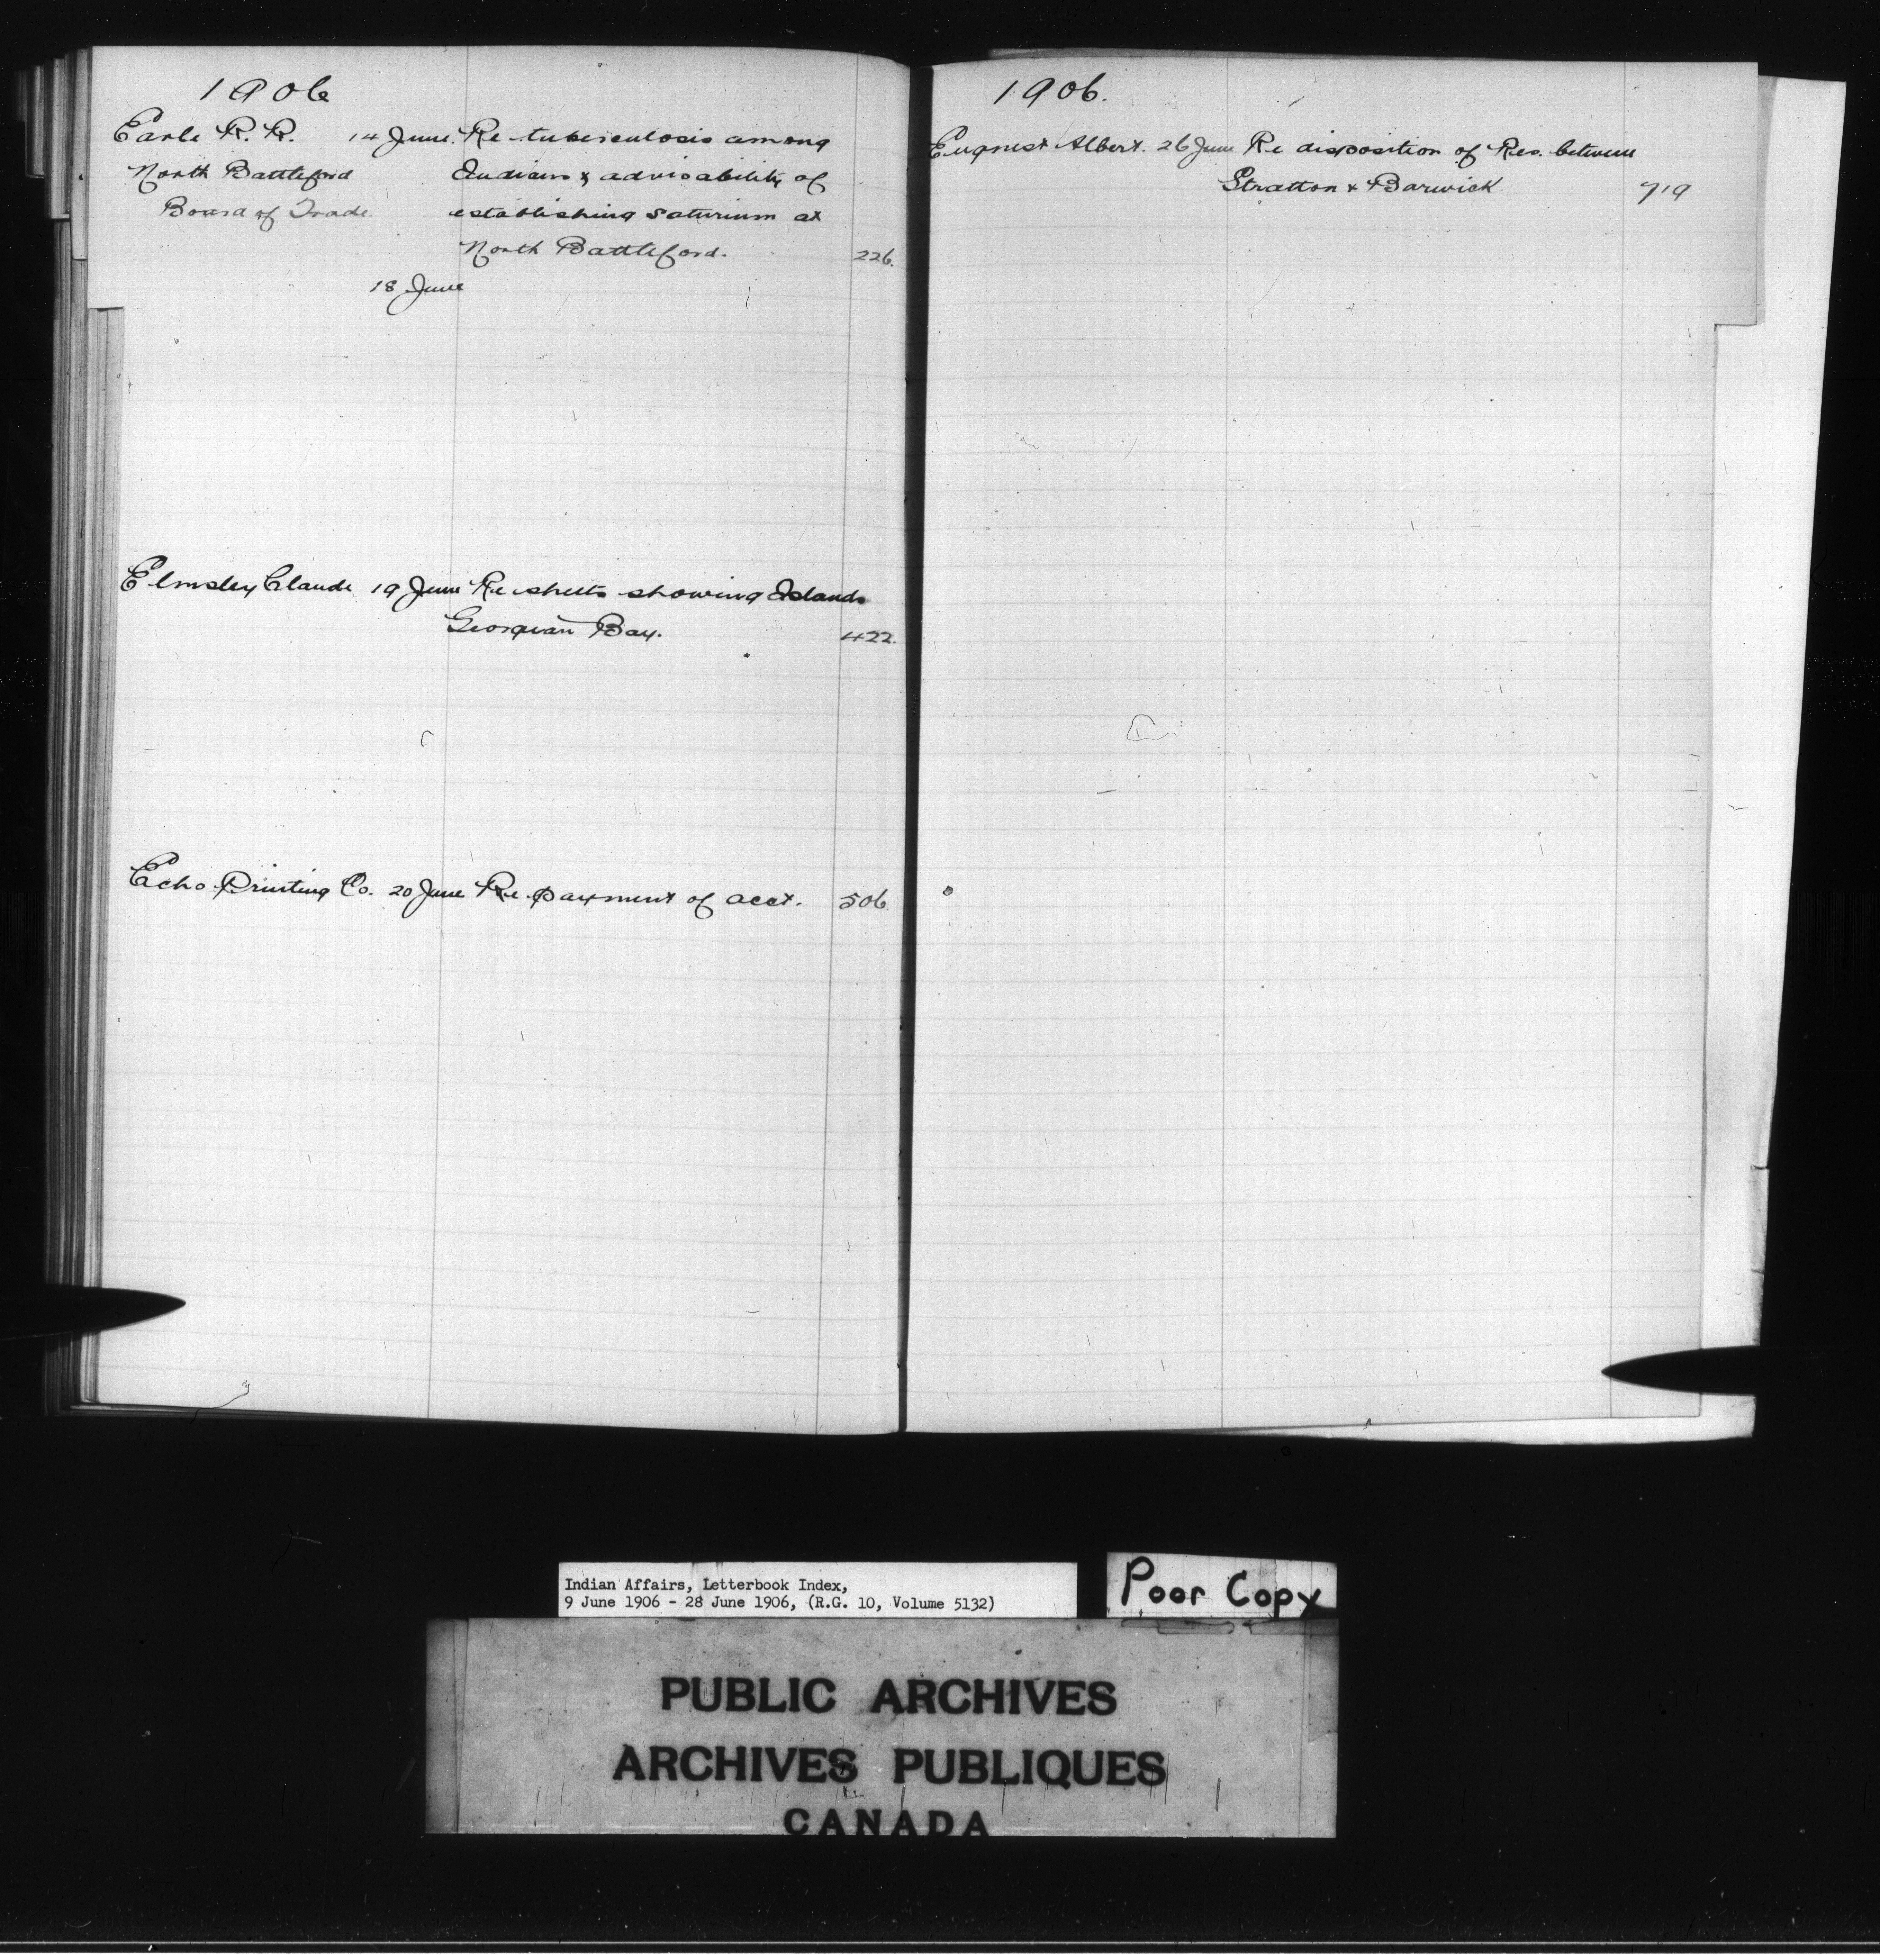 1906
Earle R. R. 14 June. Re tuberculosis among
North Battleford Indians & advisability of
Board of Trade establishing saturium at
North Battleford. 226.
18 June
Elmsley Claude 19 June Re sheets showing Islands
Georgian Bay. 422.
Echo Printing Co. 20 June Re payment of acct. 506.
1906.
Albert. 26 June Re disposition of Res. between
Stratton & Barwick 719
Indian Affairs, Letterbook Index,
9 June 1906 - 28 June 1906, (R.G. 10, Volume 5132)
Poor Copy
PUBLIC ARCHIVES
ARCHIVES PUBLIQUES
CANADA